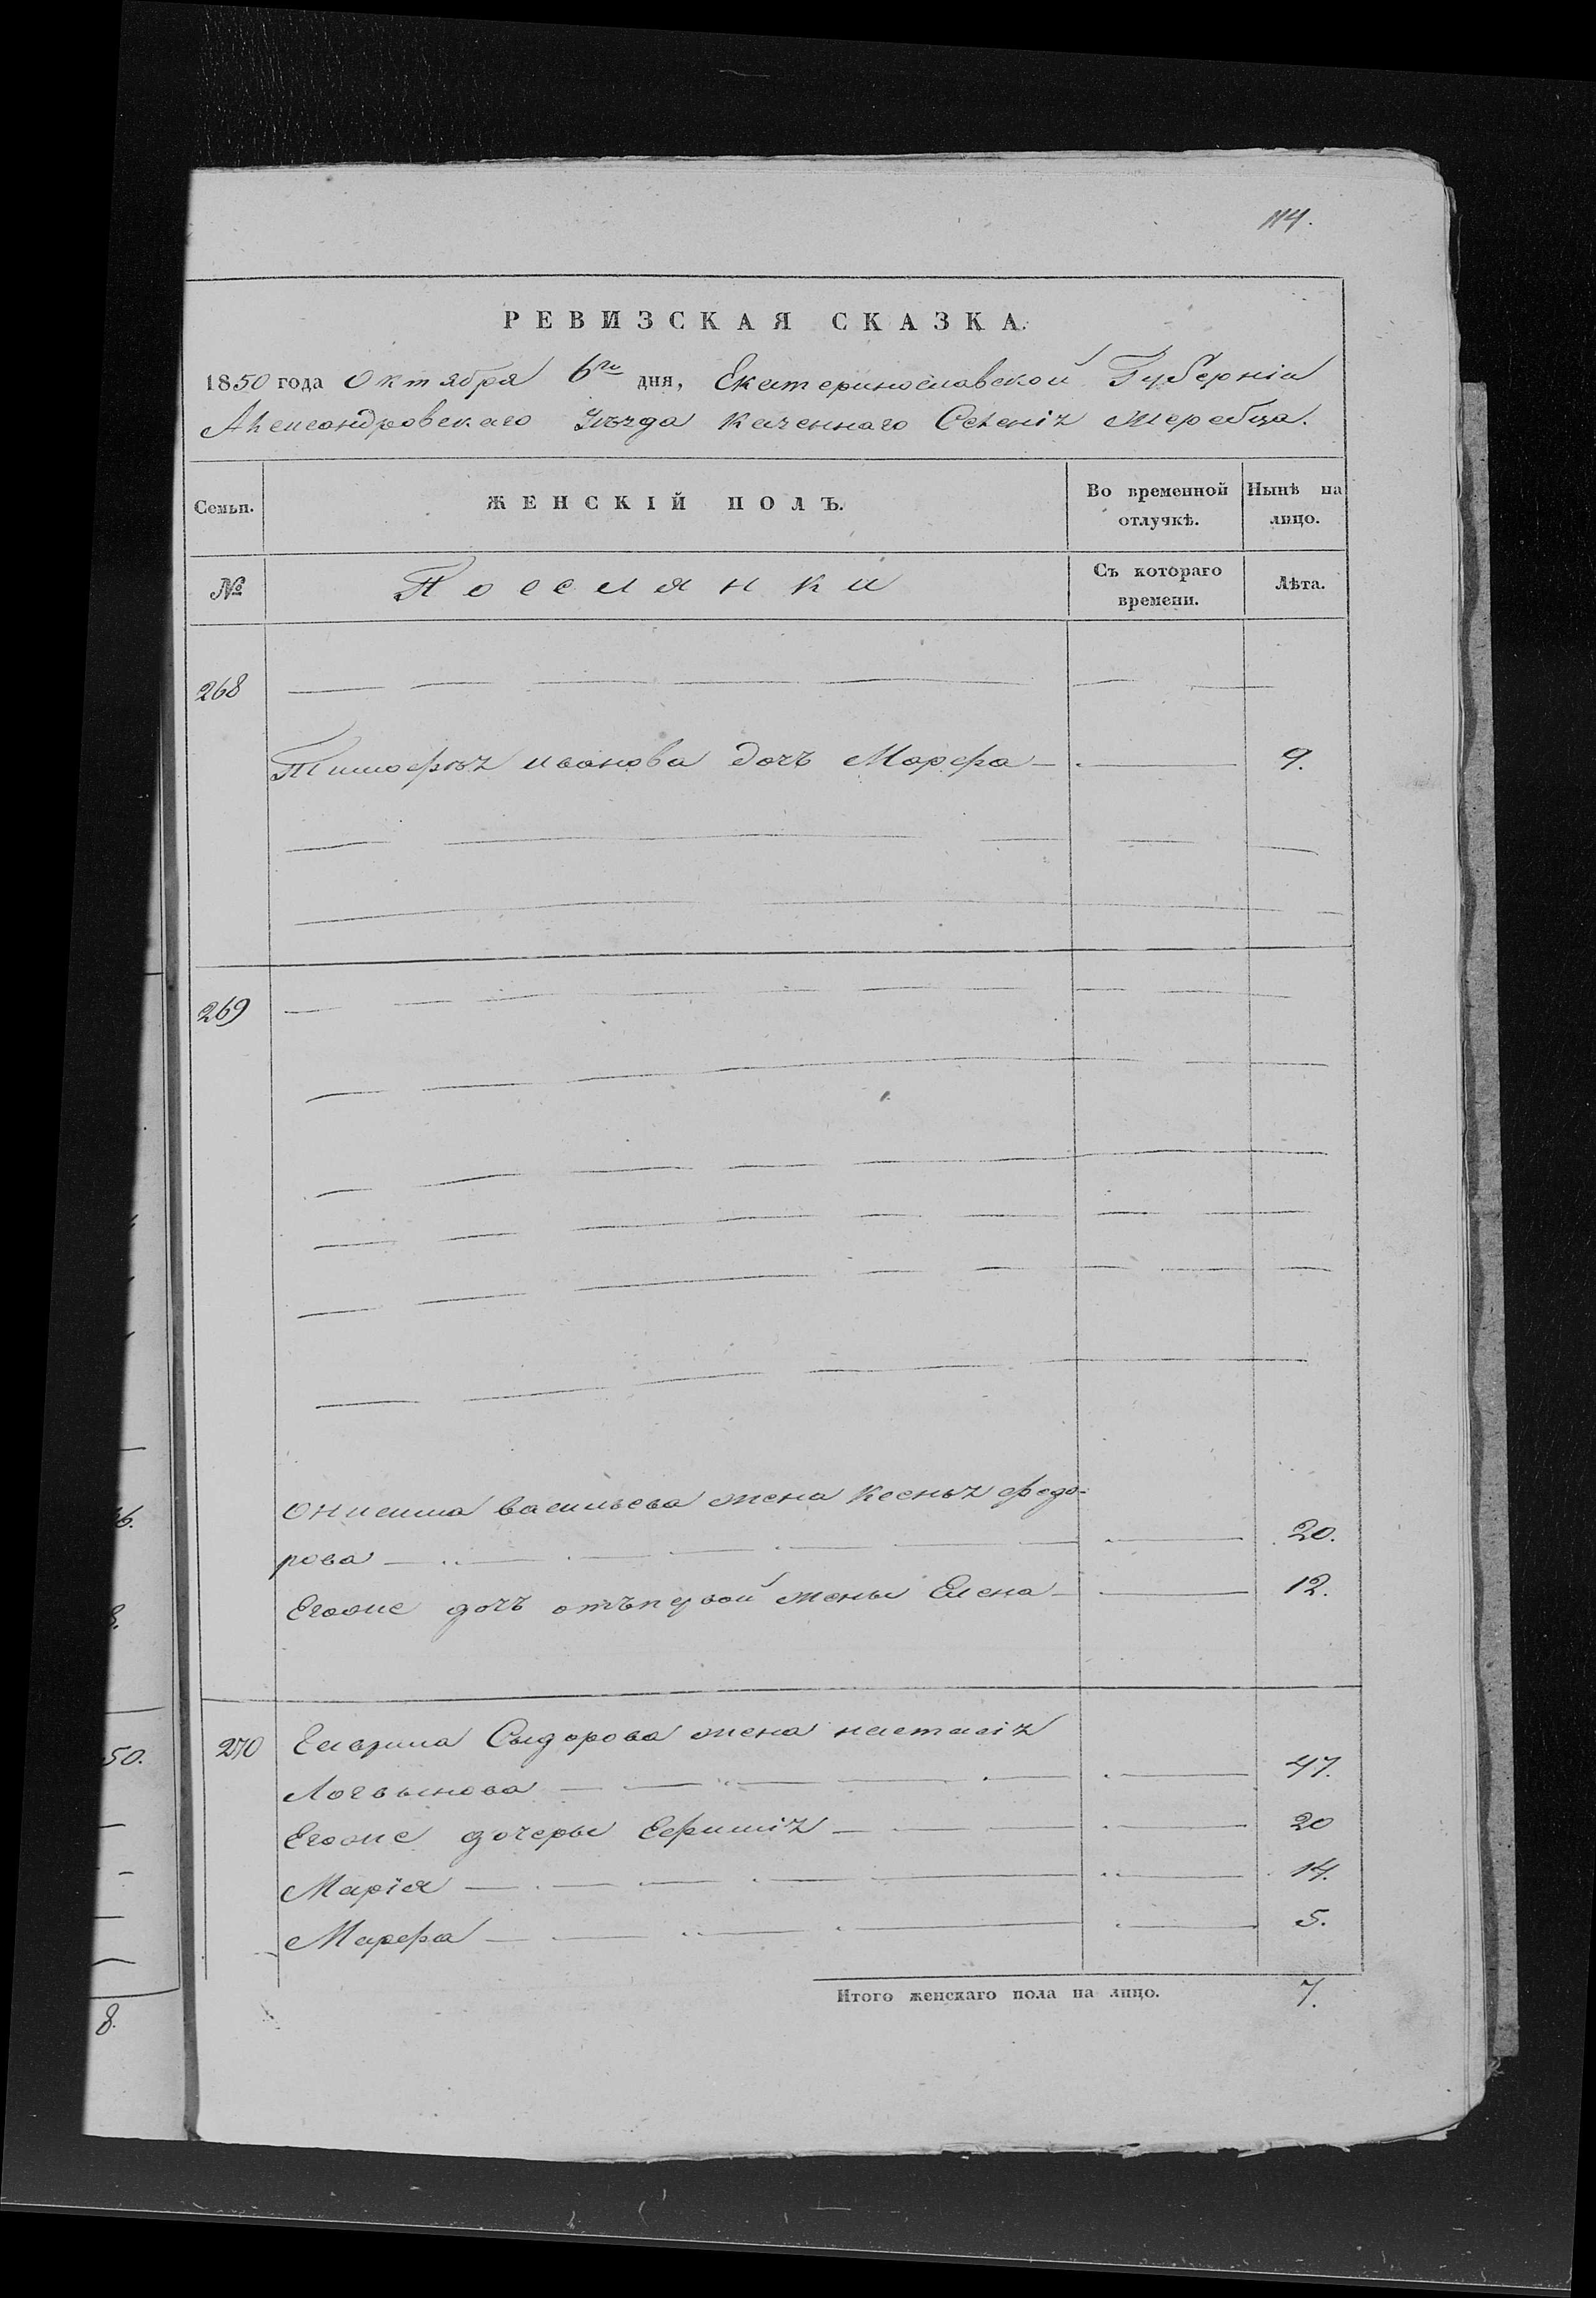 114.
РЕВИЗСКАЯ СКАЗКА.
1850 года Октября 6го дня, Екатеринославской Губерніи
Александровскаго Уѣзда Казеннаго Селенія Жеребца.
Семьи. ЖЕНСКІЙ ПОЛЪ. Во временной отлучкѣ. Нынѣ на лицо.
№ Поселянки Съ котораго времени. Лѣта.
268
Тимофѣя иванова дочъ Марфа 9.
269
Онисима васильева жена Ксенья федо-
рова 20.
Егоже дочъ отъпервой жены Елена 12.
270 Сидорова жена настасія
Логвынова 47.
Егоже дочеры Ефимія 20
Марія 14.
Марфа 5.
Итого женскаго пола на лицо. 7.
6.
8.
50.
8.